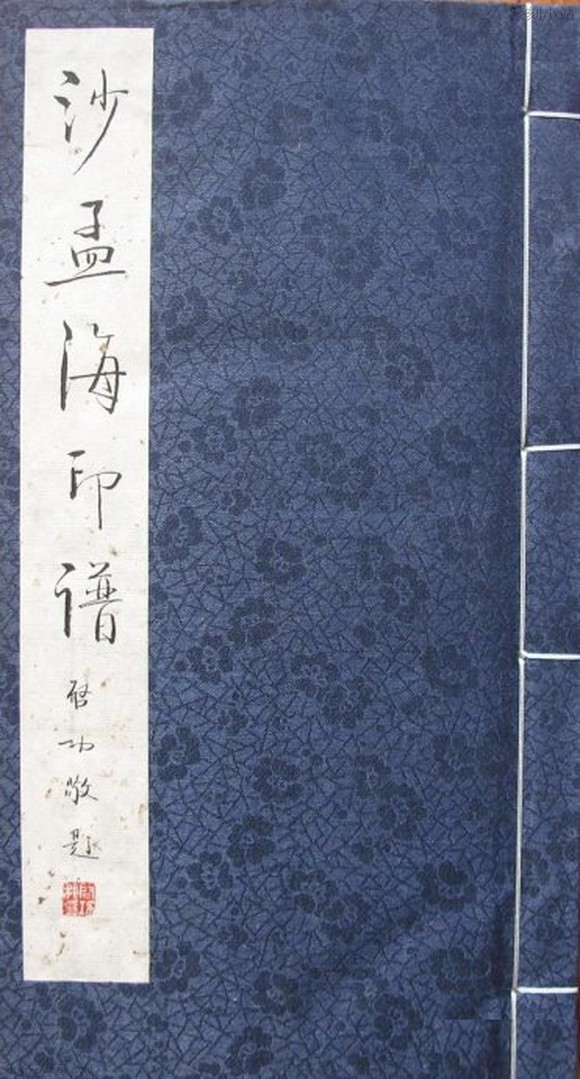 沙孟海印谱
启功敬题